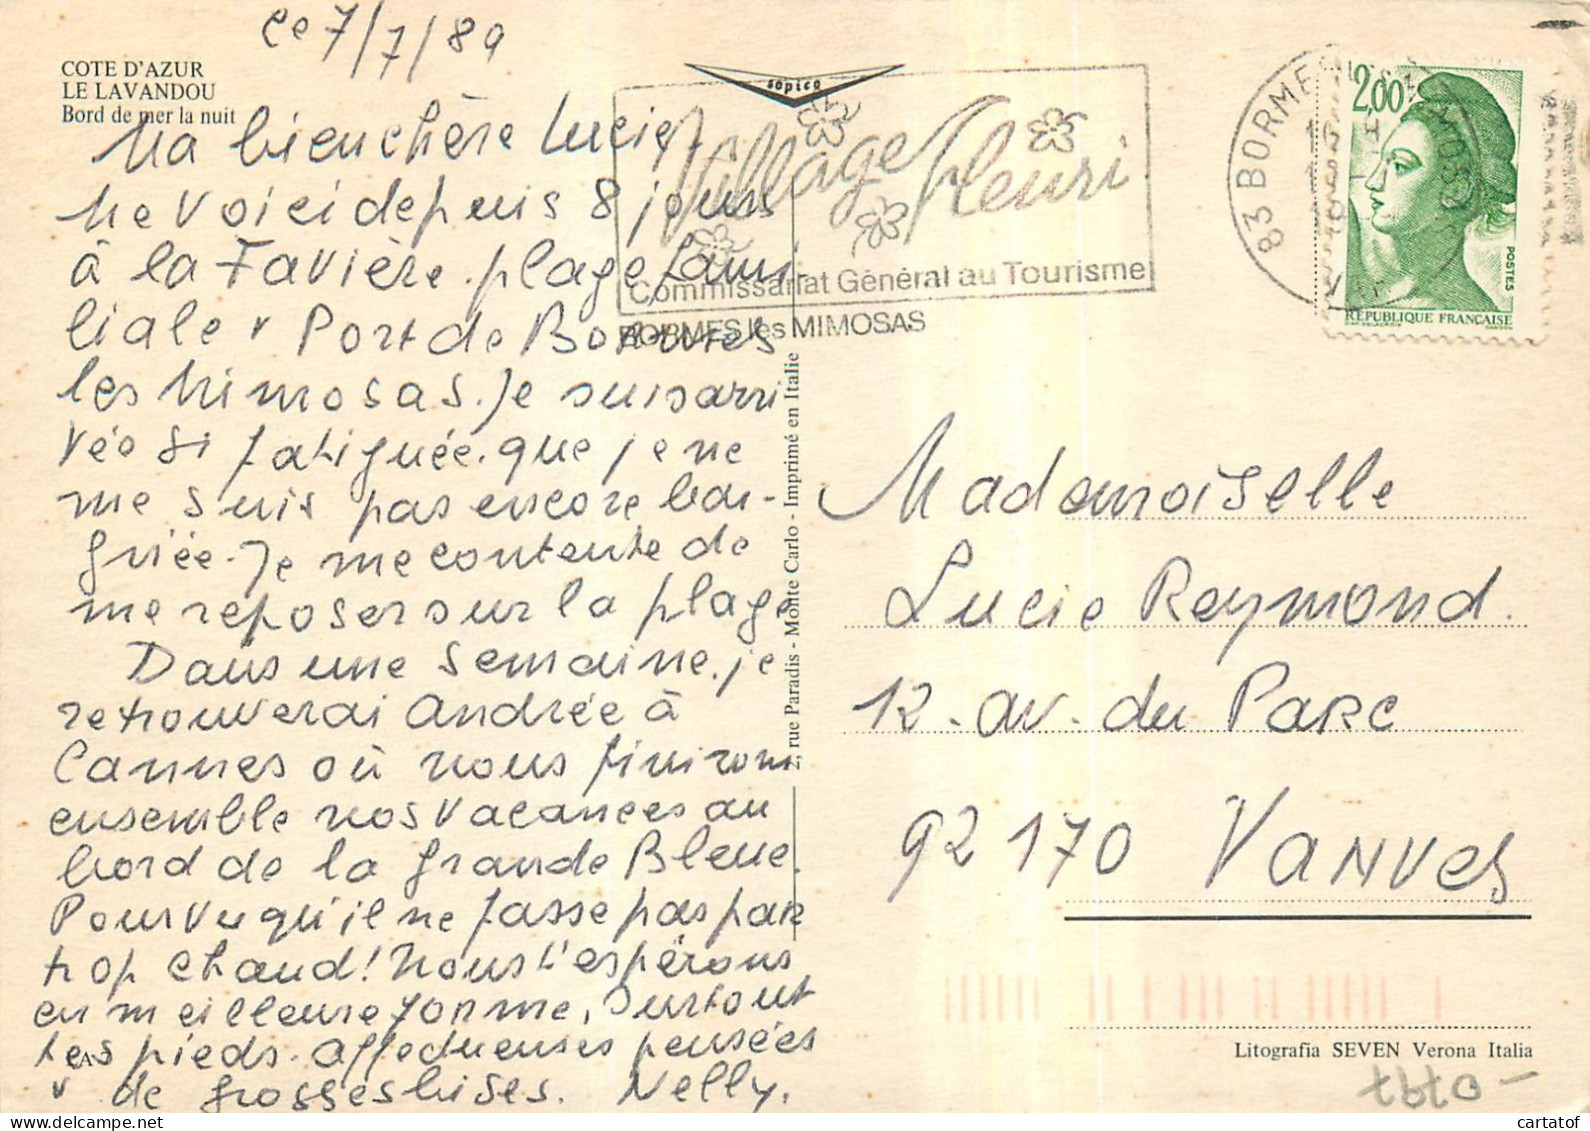 ce 7/7/89
COTE D'AZUR
LE LAVANDOU
Bord de mer la nuit
Ma bien chère Lucie,
Me voici depuis 8 jours
à la Favière. plage fami-
liale & Port de Bormes
les Mimosas. Je suis arri
vée si fatiguée. que je ne
me suis pas encore bai-
gnée. Je me contente de
me reposer sur la plage
Dans une semaine. je
retrouverai Andrée à
Cannes où nous finirons
ensemble nos vacances au
bord de la grande Bleue.
Pourvu qu'il ne fasse pas par
trop chaud! Nous t'espérons
en meilleure forme, surtout
tes pieds. Affectueuses pensées
& de grosses bises. Nelly.
sopico
Village Fleuri
Commissariat Général au Tourisme
BORMES les MIMOSAS
83 BORMES
VAR
2,00
POSTES
REPUBLIQUE FRANÇAISE
2, rue Paradis - Monte Carlo - Imprimé en Italie
Mademoiselle
Lucie Reymond.
12 - av. du Parc
92170 Vanves
Litografia SEVEN Verona Italia
cartatof